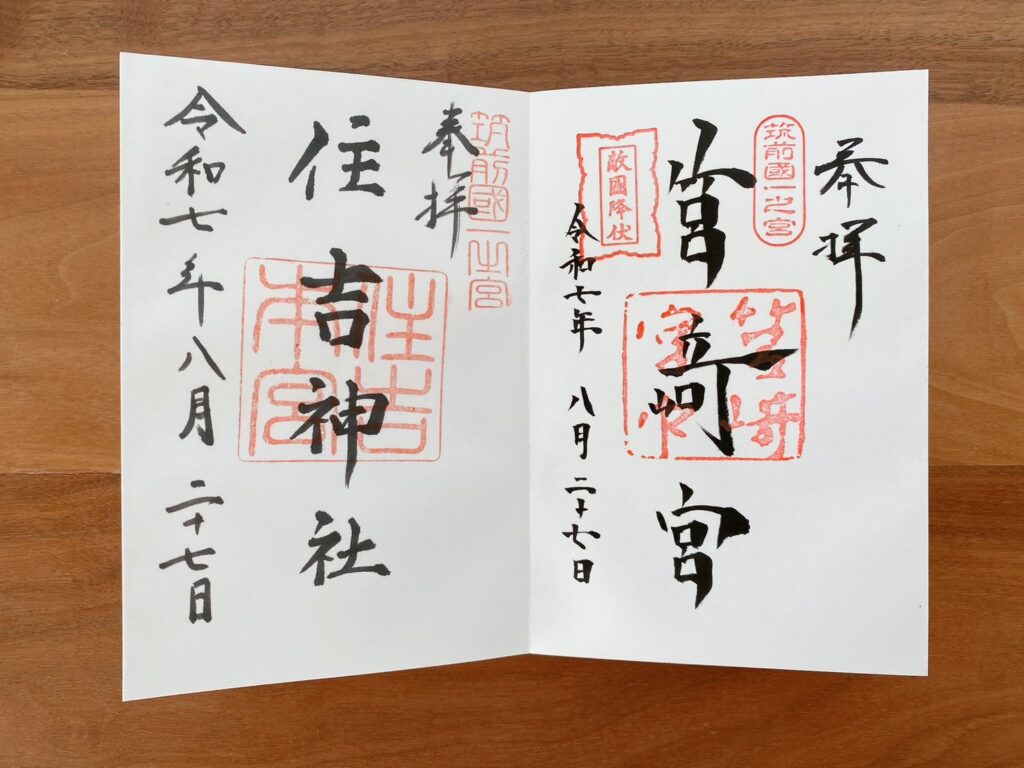 奉拝
筑前國一之宮
筥崎宮
筥崎宮印
敵國降伏
令和七年 八月 二十七日
筑前國一之宮
奉拝
住吉神社
住吉本宮
令和七年八月二十七日